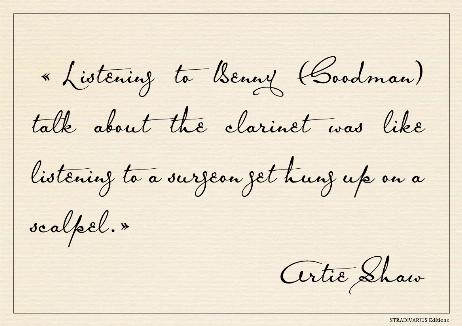 « Listening to Benny (Goodman)
talk about the clarinet was like
listening to a surgeon get hung up on a
scalpel. »
Artie Shaw
STRADIVARIUS Editions